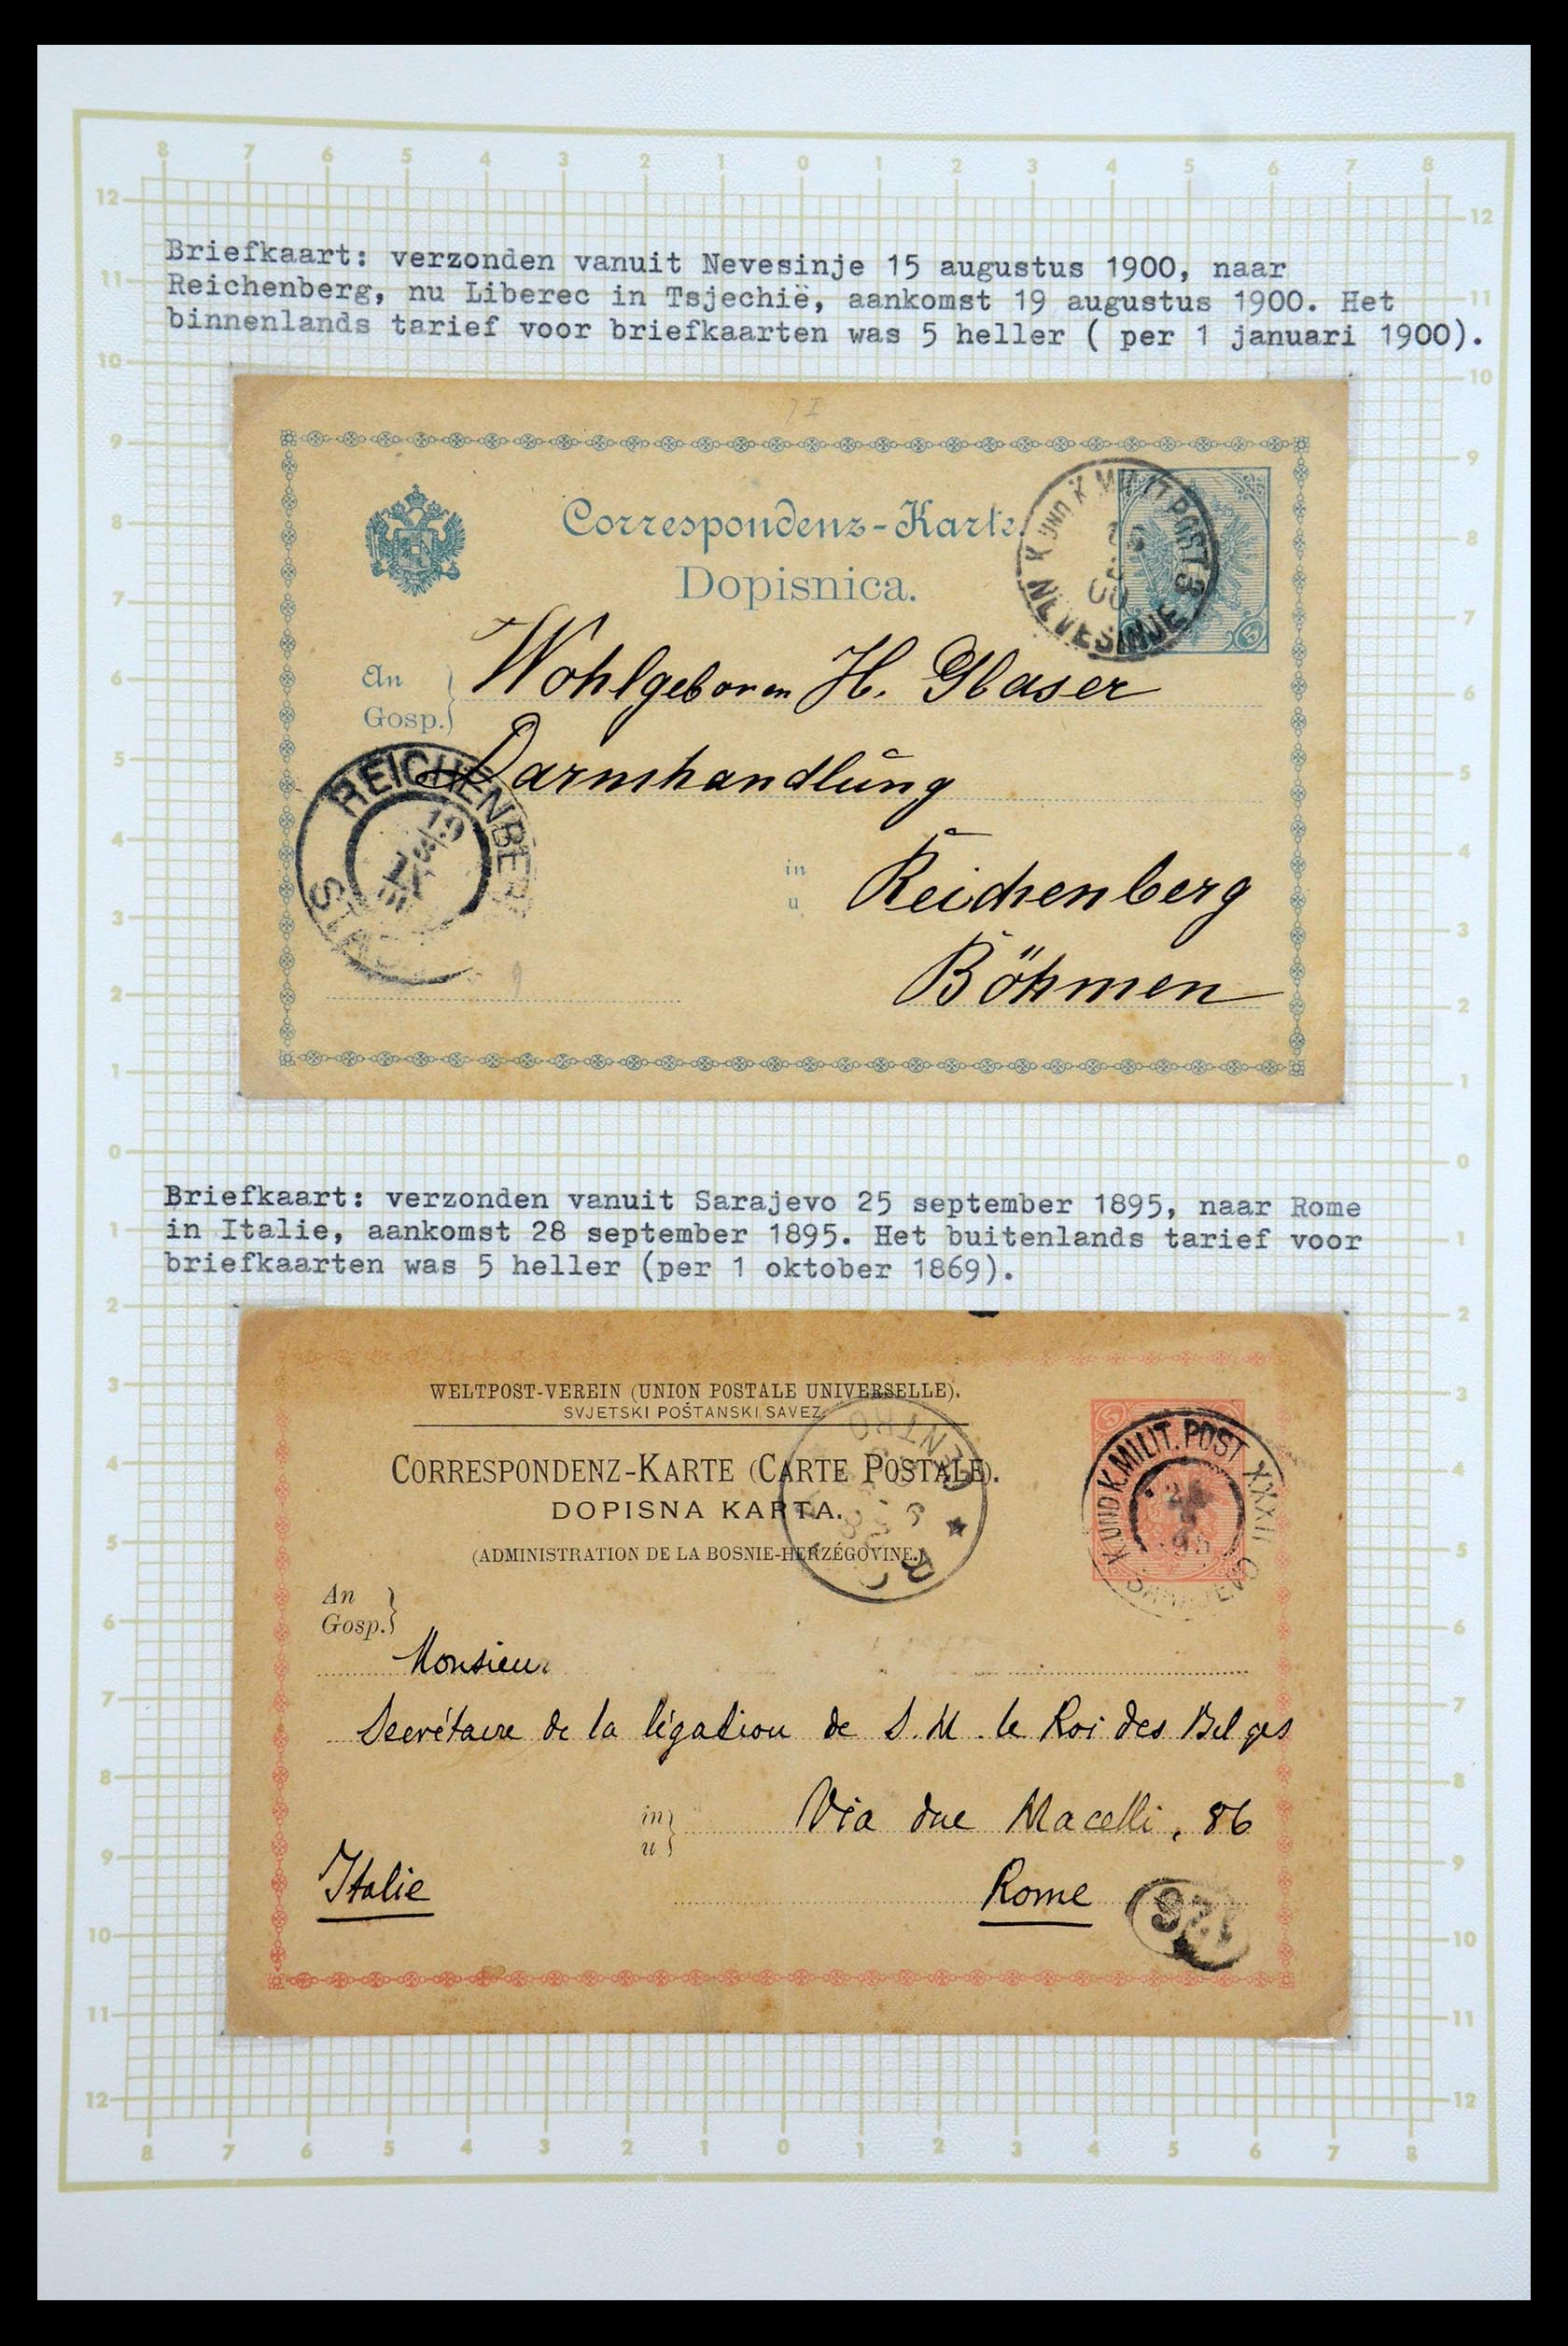 8 7 6 5 4 3 2 1 0 1 2 3 4 5 6 7 8
Briefkaart: verzonden vanuit Nevesinje 15 augustus 1900, naar
Reichenberg, nu Liberec in Tsjechië, aankomst 19 augustus 1900. Het
binnenlands tarief voor briefkaarten was 5 heller ( per 1 januari 1900).
Correspondenz-Karte
Dopisnica.
K UND K MILIT POST
NEVESINJE
5
An
Gosp.
Wohlgeboren H. Glaser
Darmhandlung
REICHENBERG
STADT
in
u
Reichenberg
Böhmen
Briefkaart: verzonden vanuit Sarajevo 25 september 1895, naar Rome
in Italie, aankomst 28 september 1895. Het buitenlands tarief voor
briefkaarten was 5 heller (per 1 oktober 1869).
WELTPOST-VEREIN (UNION POSTALE UNIVERSELLE).
SVJETSKI POŠTANSKI SAVEZ.
CORRESPONDENZ-KARTE (CARTE POSTALE).
DOPISNA KARTA.
(ADMINISTRATION DE LA BOSNIE-HERZÉGOVINE.)
K.UND K.MILIT. POST XXXII
SARAJEVO
An
Gosp.
Monsieur
Secrétaire de la légation de S. M. le Roi des Belges
in
u
Via due Macelli, 86
Italie
Rome
8 7 6 5 4 3 2 1 0 1 2 3 4 5 6 7 8